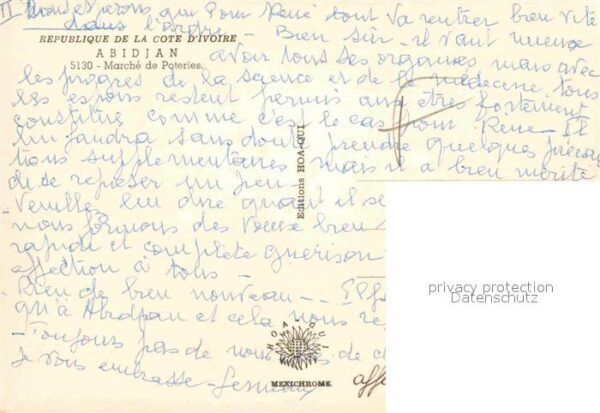 II Nous espérons que pour René tout va rentrer bien vite
dans l'ordre - Bien sûr - il vaut mieux
REPUBLIQUE DE LA COTE D'IVOIRE
ABIDJAN
5130 - Marché de Poteries.
avoir tous ses organes mais avec
les progrès de la science et de la médecine, tous
les espoirs restent permis aux êtres fortement
constitués comme c'est le cas pour René - Il
lui faudra sans doute prendre quelques précau
tions supplémentaires mais il a bien mérité
de se reposer un peu -
Veuillez lui dire quant il se
nous formons des voeux bien
rapide et complète guérison
affection à tous -
Rien de bien nouveau --
qu'à Abidjan et cela nous
- Toujours pas de nous de
Je vous embrasse -
Editions HOA-QUI
HOA-QUI
MEXICHROME
privacy protection
Datenschutz